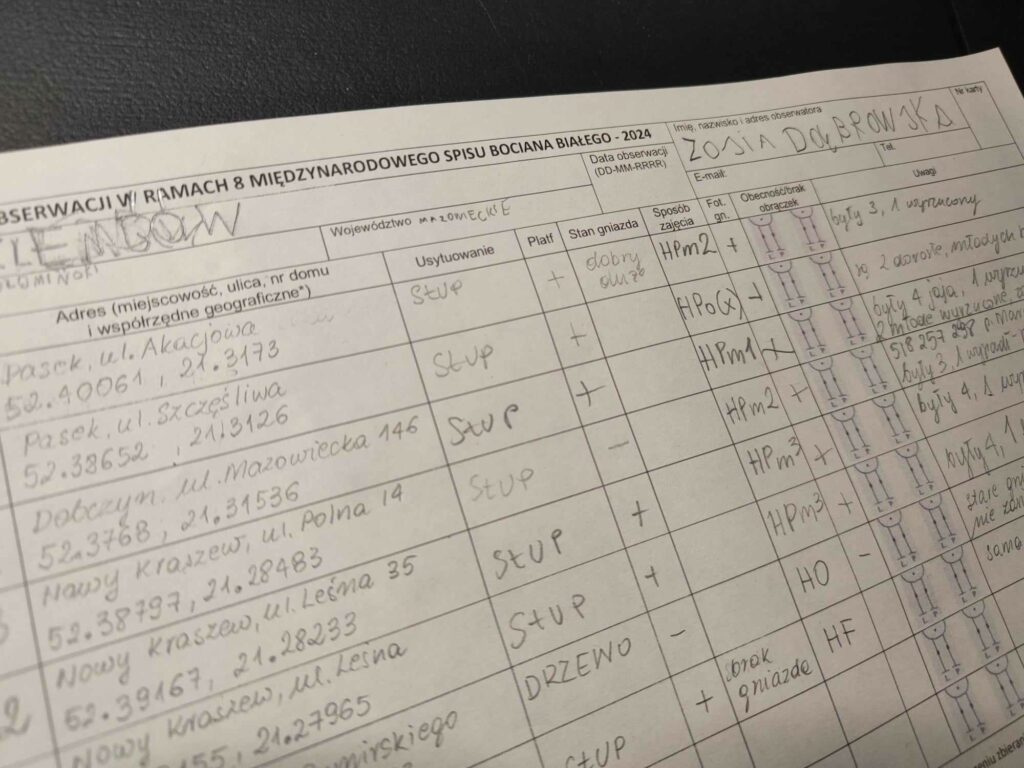 BSERWACJI W RAMACH 8 MIĘDZYNARODOWEGO SPISU BOCIANA BIAŁEGO - 2024
Data obserwacji
(DD-MM-RRRR)
Imię, nazwisko i adres obserwatora
ZOSIA DĄBROWSKA
Nr karty
E-mail:
Tel.
KLEMBÓW
Województwo MAZOWIECKIE
WOŁOMIŃSKI
Adres (miejscowość, ulica, nr domu
i współrzędne geograficzne*)
Usytuowanie
Platf
Stan gniazda
Sposób
zajęcia
Fot.
gn.
Obecność/brak
obrączek
Uwagi
Pasek, ul. Akacjowa
52.40061, 21.3173
SŁUP + dobry
duże HPm2 + były 3, 1 wyrzucony
Pasek, ul. Szczęśliwa
52.38652, 21.3126
SŁUP + HPo(x) + są 2 dorosłe, młodych
Dobczyn, ul. Mazowiecka 146
52.3768, 21.31536
SŁUP + HPm1 + były 4 jaja, 1
2 młode wyrzucone,
518 257 298 p.
Nowy Kraszew, ul. Polna 14
52.38797, 21.28483
SŁUP - HPm2 + były 3, 1 wypadł
Nowy Kraszew, ul. Leśna 35
52.39167, 21.28233
SŁUP + HPm3 + były 4, 1
Nowy Kraszew, ul. Leśna
155, 21.27965
SŁUP + HPm3 + były 4, 1
DRZEWO - HO - stare
nie
SŁUP + brak
gniazda HF samo